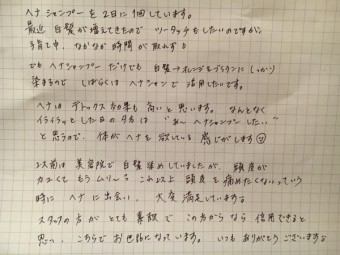 ヘナシャンプーを2日に1回しています。
最近 白髪が増えてきたので ツータッチをしたいのですが、
子育て中、なかなか時間が取れず
でも ヘナシャンプーだけでも 白髪→オレンジ&ブラウンに しっかり
染まるので しばらくは ヘナシャンで 活用したいです。
ヘナは デトックス効果も 高いと思います。 なんとなく
イライラッとした日の夕方は "あ〜 ヘナシャンプーしたい"
と思うので、体が ヘナを 欲している 感じがします
2人前は 美容院で 白髪染めしていましたが、頭皮が
カユくて もう ムリ〜 これ以上 頭皮を 痛めたくないっていう
時に ヘナに出会い、 大変 満足しています
スタッフの方が とても 素敵で この方から なら 信用できると
思い、こちらで お世話になっています。 いつも ありがとう ございます